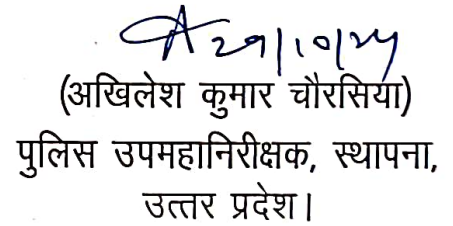 29/10/24
(अखिलेश कुमार चौरसिया)
पुलिस उपमहानिरीक्षक, स्थापना,
उत्तर प्रदेश।